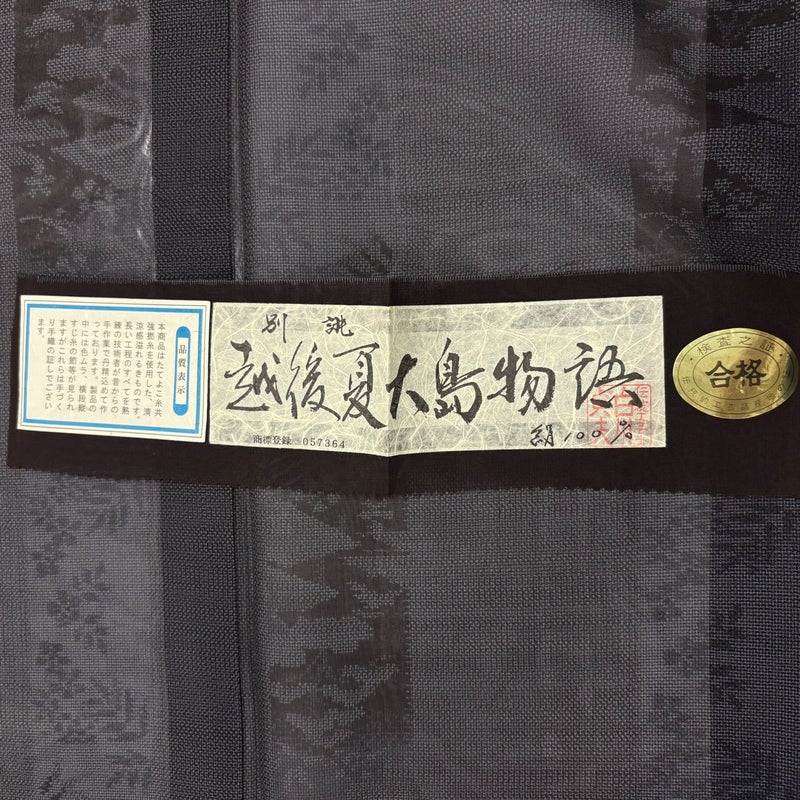 品質表示
本商品はたてよこ糸共
強撚糸を使用した、清
涼感溢れるきものです。
長い工程のすべてを熟
練の技術者が昔からの
手作業で丹精込めて作
っております。製品の
中には色むら、横段縦
すじ糸の節等が見られ
ますがこれらは手づく
り手織の証しでござい
ます。
別誂
越後夏大島物語
商標登録 057364
絹100%
検査之証
合格